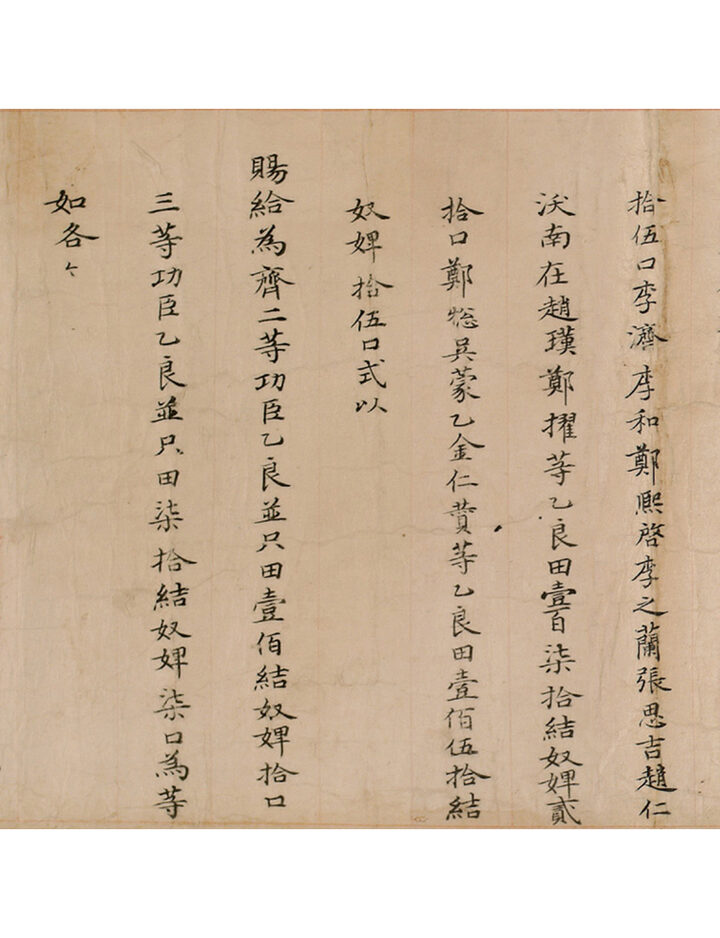 拾伍口李濟李和鄭熙啓李之蘭張思吉趙仁
沃南在趙璞鄭擢等乙良田壹百柒拾結奴婢貳
拾口鄭摠吳蒙乙金仁賛等乙良田壹佰伍拾結
奴婢拾伍口式以
賜給為齊二等功臣乙良並只田壹佰結奴婢拾口
三等功臣乙良並只田柒拾結奴婢柒口為等
如各